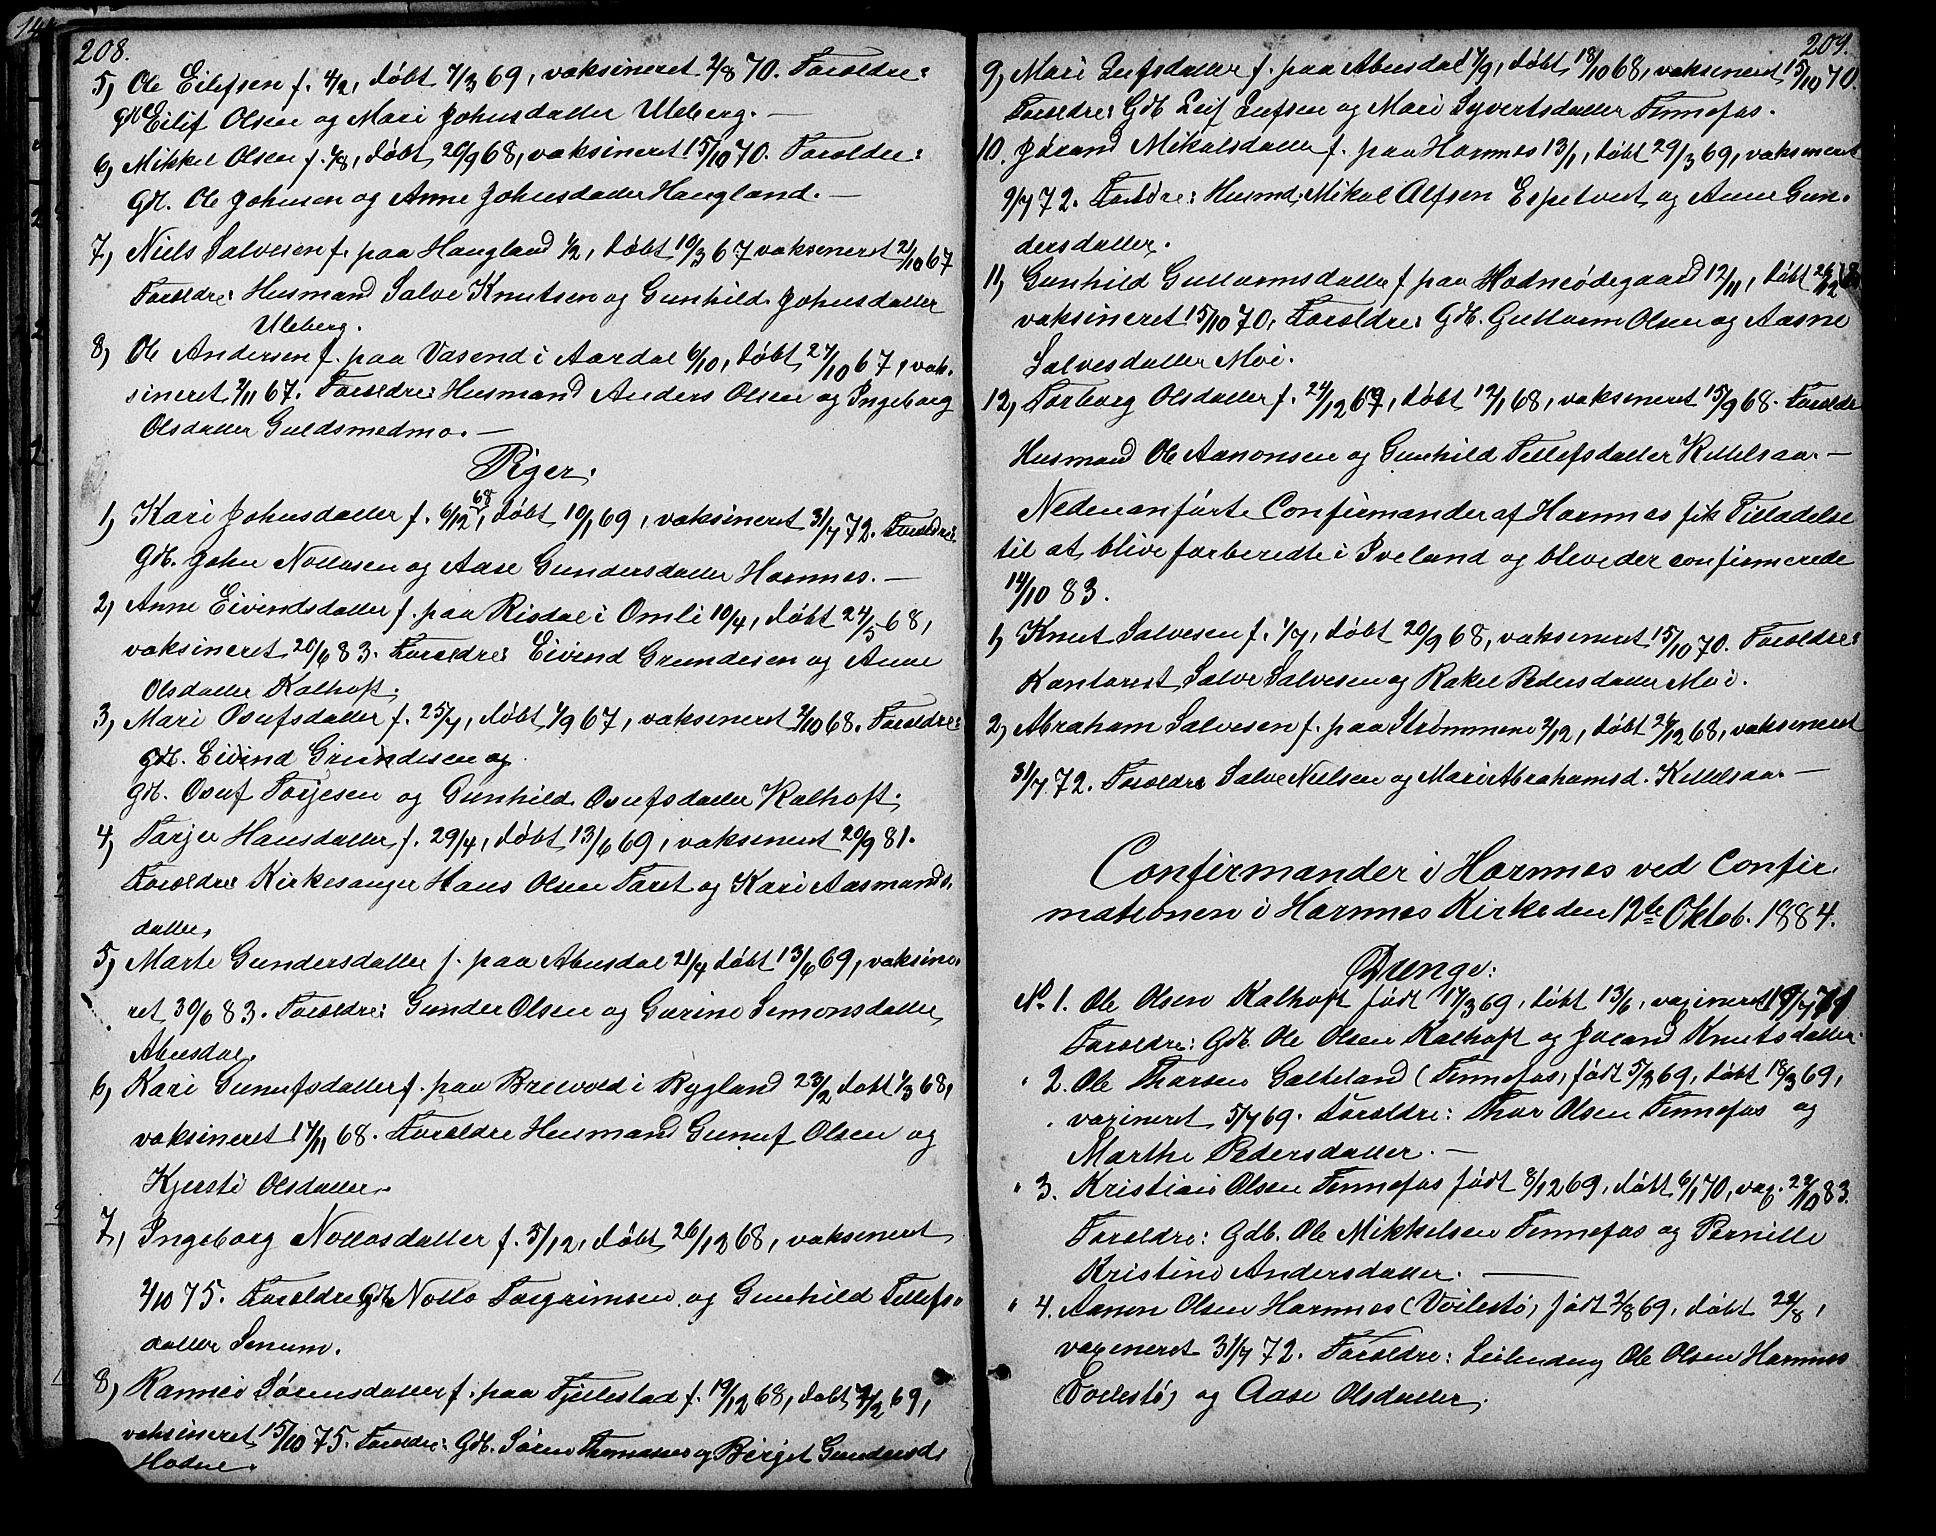 208.
5, Ole Eilefsen f. 4/2, døbt 7/3 69, vaksineret 2/8 70. Foreldre:
Gdb. Eilif Olsen og Mari Johnsdatter Uleberg. —
6, Mikkel Olsen f. 4/8, døbt 20/9 68, vaksineret 15/10 70. Foreldre:
Gdb. Ole Johnsen og Anne Johnsdatter Haugland. —
7, Niels Salvesen f. paa Haugland 1/2, døbt 10/3 67 vaksineret 21/10 67
Foreldre: Husmand Salve Knutsen og Gunhild Johnsdatter
Uleberg.
8, Ole Andersen f. paa Vasend i Aardal 6/10, døbt 27/10 67, vak-
sineret 2/11 67. Foreldre: Husmand Anders Olsen og Ingeborg
Olsdatter Guldsmedmo. —
Piger:
1, Kari Johnsdatter f. 6/12 68, døbt 10/1 69, vaksineret 31/7 72. Foreldre:
Gdb. John Nollosen og Aase Gundersdatter Hornnes. —
2, Anne Eivindsdatter f. paa Risdal i Omli 10/4, døbt 24/5 68,
vaksineret 20/6 83. Foreldre: Eivind Grundesen og Anne
Olsdatter Kalhoft.
3, Mari Osufsdatter f. 25/7, døbt 1/9 67, vaksineret 2/10 68. Foreldre:
Gdb. Eivind Grundesen og
Gdb. Osuf Torjesen og Gunhild Osufsdatter Kalhoft.
4, Torjer Hansdatter f. 29/4, døbt 13/6 69, vaksineret 20/9 81.
Foreldre: Kirkesanger Hans Olsen Foret og Kari Aasmunds-
datter.
5, Marte Gundersdatter f. paa Abusdal 21/4 døbt 13/6 69, vaksine-
ret 30/6 83. Foreldre: Gunder Olsen og Gurine Simonsdatter
Abusdal.
6, Kari Gunufsdatter f. paa Breivold i Bygland 23/2 døbt 1/3 68,
vaksineret 17/11 68. Foreldre Husmand Gunuf Olsen og
Kjersti Olsdatter.
7, Ingeborg Nollosdatter f. 5/12, døbt 26/12 68, vaksineret
2/10 75. Foreldre Gdb. Nollo Torgrimsen og Gunhild Tellefs-
datter Senum.
8, Rannei Sørensdatter f. paa Fjellestad f. 19/12 68, døbt 7/2 69,
vaksineret 15/10 75. Foreldre: Gdb. Søren Thomassen og Birgit Gundersd.
Hodne.
209.
9, Mari Leifsdatter f. paa Abusdal 17/9, døbt 18/10 68, vaksineret 15/10 70.
Foreldre: Gdb. Leif Leifsen og Mari Syvertsdatter Fennefos.
10. Jørand Mikalsdatter f. paa Hornnes 13/1, døbt 29/3 69, vaksineret
9/7 72. Foreldre: Husmd. Mikal Alfsen Espetveit og Anne Gun-
dersdatter.
11, Gunhild Guttormsdatter f. paa Hodneødegaard 12/11, døbt 26/12 68
vaksineret 15/10 70. Foreldre: Gdb. Guttorm Olsen og Aasne
Salvesdatter Moi.
12, Torborg Olsdatter f. 24/12 67, døbt 12/1 68, vaksineret 15/9 68. Foreldre
Husmand Ole Aanonsen og Gunhild Tellefsdatter Kittelsaa. —
Nedenanførte Confirmander af Hornnes fik Tilladelse
til at blive forberedte i Iveland og bleve der confirmerede
14/10 83.
1, Knut Salvesen f. 1/7, døbt 20/9 68, vaksineret 15/10 70. Foreldre:
Kantorist Salve Salvesen og Rakel Pedersdatter Moi.
2, Abraham Salvesen f. paa Strømmene 2/12, døbt 27/12 68, vaksineret
31/7 72. Foreldre Salve Nielsen og Mari Abrahamsd. Kittelsaa. —
Confirmander i Hornnes ved Confir-
mationen i Hornnes Kirke den 12te Oktob. 1884.
Drenge:
No 1. Ole Olsen Kalhoft født 17/3 69, døbt 13/6, vagineret
Foreldre: Gdb. Ole Olsen Kalhoft og Jorand Knutsdatter
" 2. Ole Thorsen Galteland (Fennefos) født 5/3 69, døbt 18/3 69,
vagineret 5/7 69. Foreldre: Thor Olsen Fennefos og
Marthe Pedersdatter. —
" 3. Kristian Olsen Fennefos født 8/12 69, døbt 6/1 70, vag. 22/10 83.
Foreldre: Gdb. Ole Mikkelsen Fennefos og Pernille
Kristine Andersdatter. —
" 4. Aanon Olsen Hornnes (Voilestø) født 2/8 69, døbt 22/8,
vagineret 31/7 72. Foreldre: Leilending Ole Olsen Hornnes
(Voilestø) og Aase Olsdatter.